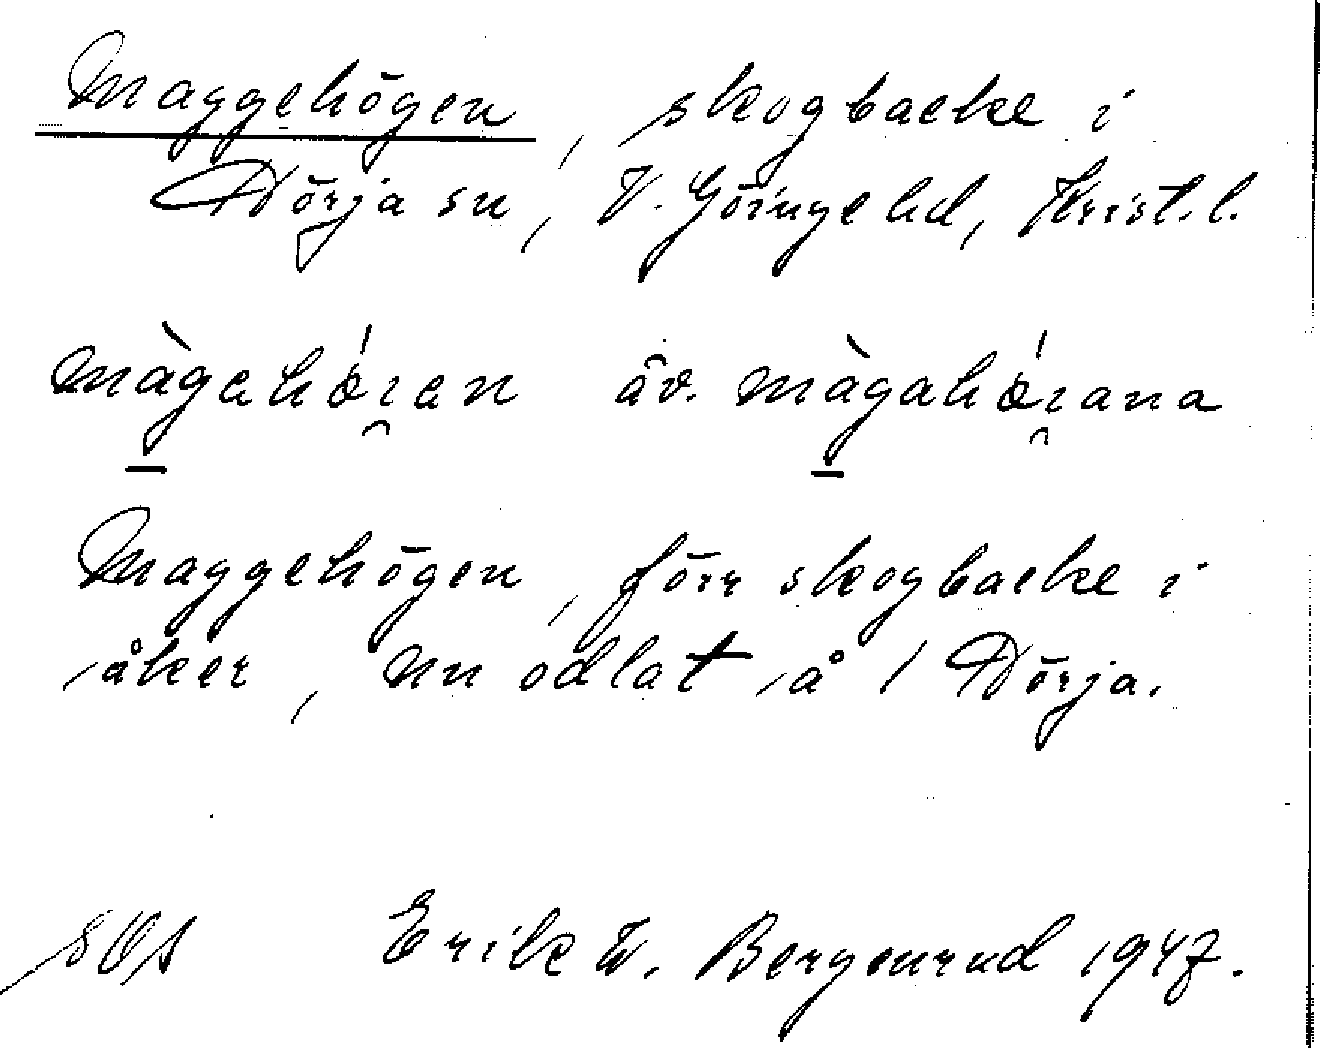 Maggehögen, skogbacke i
Dörja sn, V. Göinge hd, Krist. l.
màgahǿ̯ɪan äv. màgahǿ̯ɪana
Maggehögen, förr skogbacke i
åker, nu odlat, å 1 Dörja.
SOA Erik W. Bergenrud 1947.